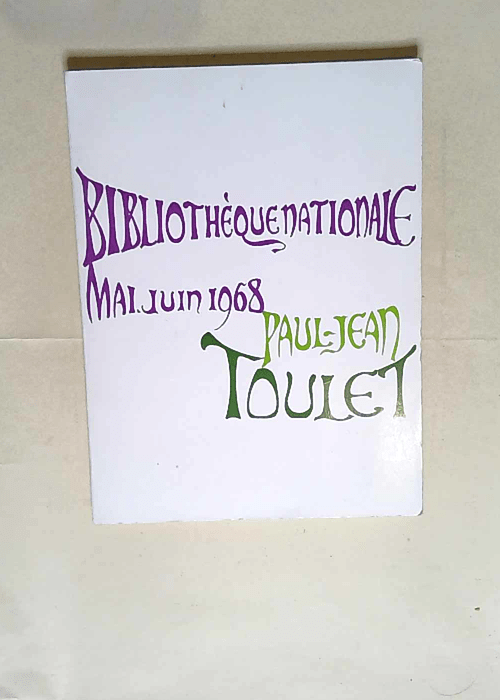 BIBLIOTHÈQUE NATIONALE
MAI.JUIN 1968
PAUL-JEAN
TOULET